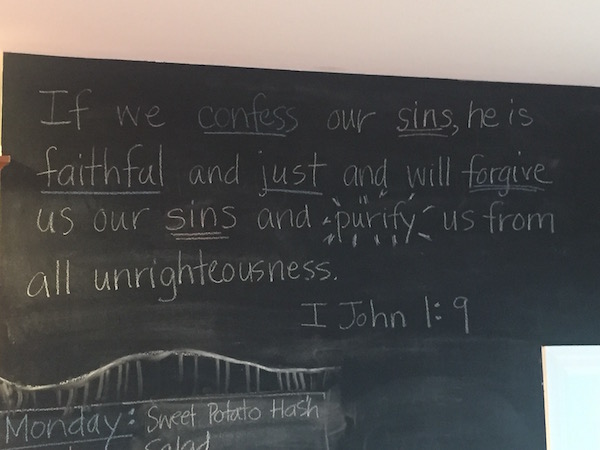 If we confess our sins, he is
faithful and just and will forgive
us our sins and purify us from
all unrighteousness.
I John 1:9
Monday: Sweet Potato Hash
Salad